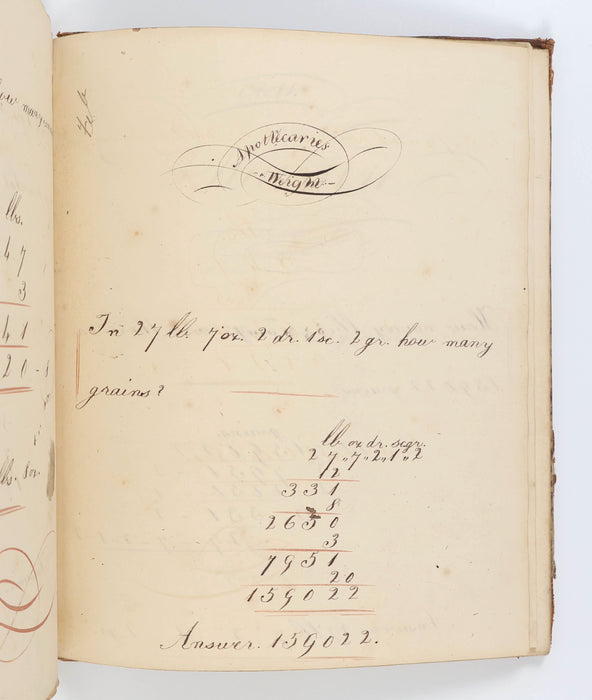 lbs.
47
3
41
20
Apothecaries
Weight
In 27 lb. 7 oz. 2 dr. 1 sc. 2 gr. how many
grains?
lb. oz. dr. sc. gr.
27 „ 7 „ 2 „ 1 „ 2
12
331
8
2650
3
7951
20
159022
Answer. 159022.